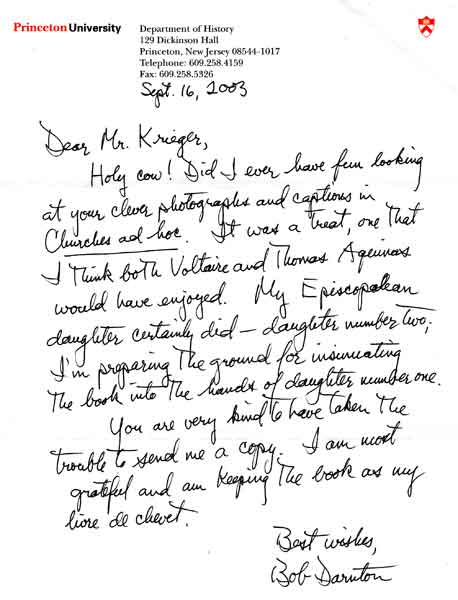 Princeton University
Department of History
129 Dickinson Hall
Princeton, New Jersey 08544-1017
Telephone: 609.258.4159
Fax: 609.258.5326
Sept. 16, 2003
Dear Mr. Krieger,
Holy cow! Did I ever have fun looking
at your clever photographs and captions in
Churches ad hoc. It was a treat, one that
I think both Voltaire and Thomas Aquinas
would have enjoyed. My Episcopalean
daughter certainly did – daughter number two;
I'm preparing the ground for insinuating
the book into the hands of daughter number one.
You are very kind to have taken the
trouble to send me a copy. I am most
grateful and am keeping the book as my
livre de chevet.
Best wishes,
Bob Darnton